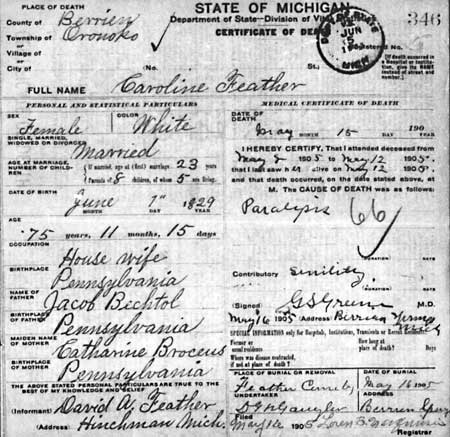 PLACE OF DEATH
County of Berrien
Township of Oronoko
or
Village of
or
City of
STATE OF MICHIGAN
Department of State—Division of
CERTIFICATE OF DEA
346
JUN
5
MICH
Registered No.
St.;
(If death occurred in a Hospital or Institution, give its NAME instead of street and number.)
FULL NAME Caroline Feather
PERSONAL AND STATISTICAL PARTICULARS
SEX
Female
COLOR
White
SINGLE, MARRIED, WIDOWED OR DIVORCED
Married
AGE AT MARRIAGE, NUMBER OF CHILDREN
If married, age at (first) marriage 23 years
Parents of 8 children, of whom 5 are living.
DATE OF BIRTH
June 1" 1829
MONTH DAY YEAR
AGE
75 years, 11 months, 15 days
OCCUPATION
House wife
BIRTHPLACE
Pennsylvania
NAME OF FATHER
Jacob Bechtol
BIRTHPLACE OF FATHER
Pennsylvania
MAIDEN NAME OF MOTHER
Catharine Broceus
BIRTHPLACE OF MOTHER
Pennsylvania
THE ABOVE STATED PERSONAL PARTICULARS ARE TRUE TO THE BEST OF MY KNOWLEDGE AND BELIEF
(Informant) David A. Feather
(Address) Hinchman Mich.
MEDICAL CERTIFICATE OF DEATH
DATE OF DEATH
May 15 190
MONTH DAY YEAR
I HEREBY CERTIFY, That I attended deceased from
May 2 1905 to May 12 1905,
that I last saw her alive on May 12 190
and that death occurred, on the date stated above, at
M. The CAUSE OF DEATH was as follows:
Paralysis 66
DURATION
Contributory Senility
DURATION
(Signed) M.D.
May 16 1905 (Address) Berrien
Mich
SPECIAL INFORMATION only for Hospitals, Institutions, Transients or Recent Residents
Former or usual residence
How long at place of death? Days
Where was disease contracted, if not at place of death?
PLACE OF BURIAL OR REMOVAL
Feather
DATE OF BURIAL
May 16 1905
UNDERTAKER
ADDRESS
Berrien
May 16 1905
Registrar